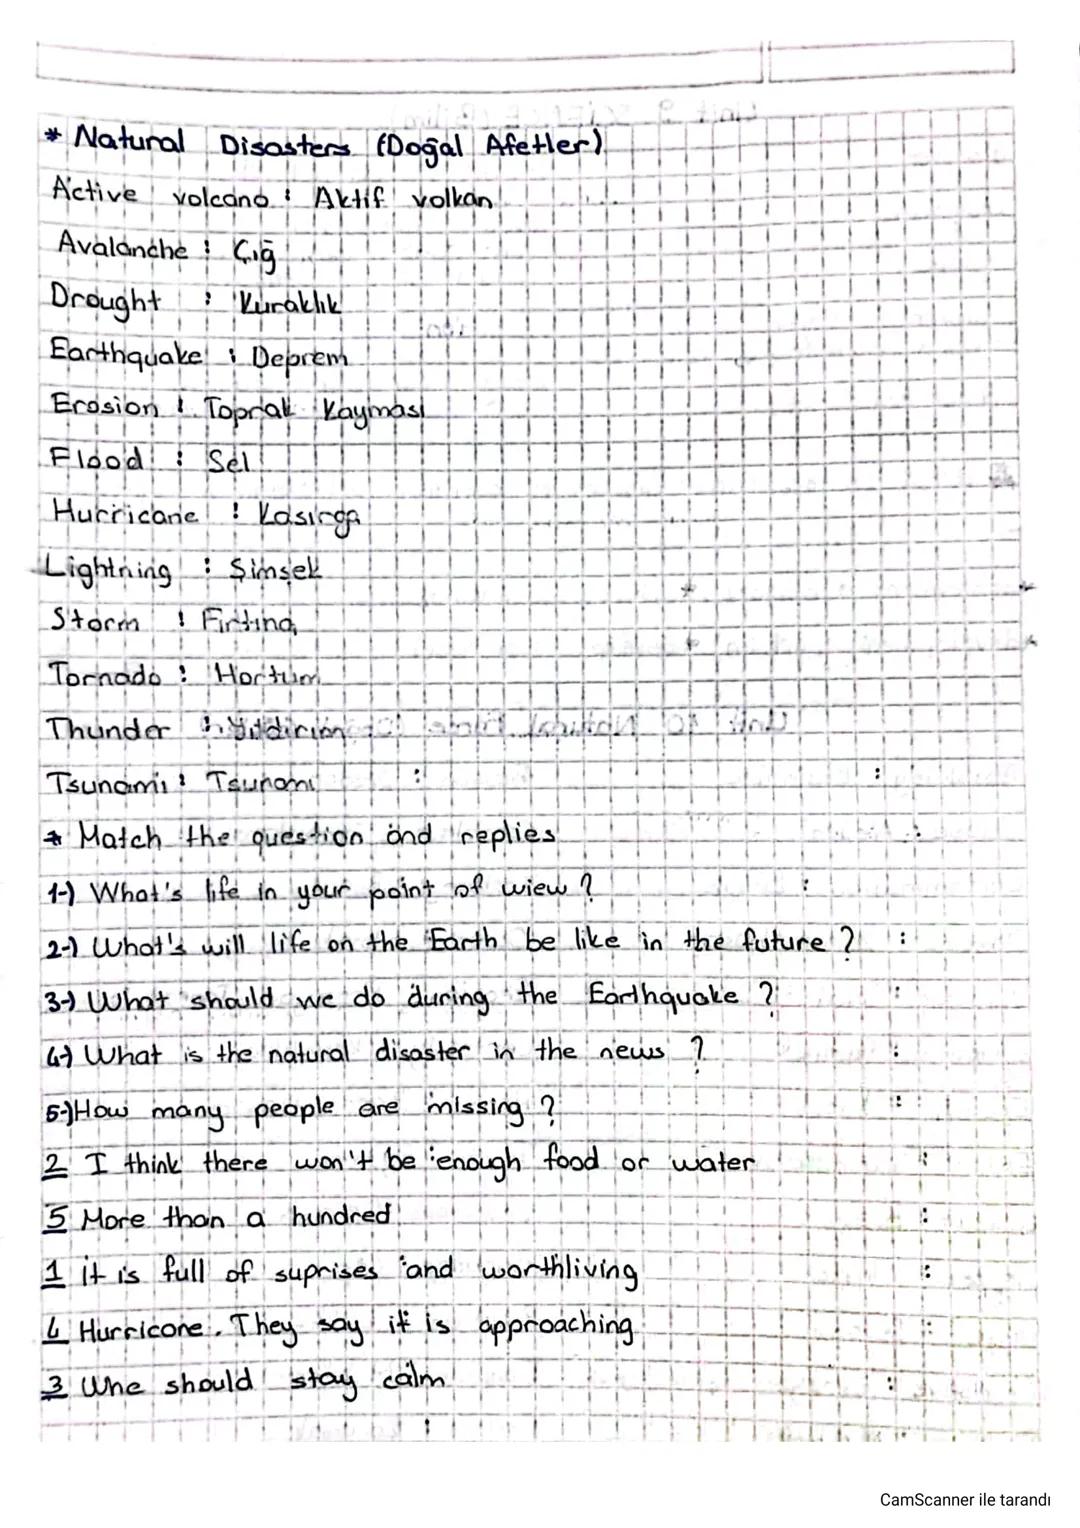 * Natural Disasters (Doğal Afetler)
Active volcano : Aktif volkan
Avalanche : Çığ
Drought : Kuraklık
Earthquake : Deprem
Erosion : Toprak Kayması
Flood : Sel
Hurricane : Kasırga
Lightning : Şimşek
Storm : Fırtına
Tornado : Hortum
Thunder : Yıldırım
Tsunami : Tsunami
* Match the question and replies
1-) What's life in your point of wiew ?
2-) What's will life on the Earth be like in the future ?
3-) What should we do during the Earthquake ?
4-) What is the natural disaster in the news ?
5-) How many people are missing ?
2 I think there won't be enough food or water
5 More than a hundred
1 it is full of suprises and worthliving
4 Hurricone. They say it is approaching
3 Whe should stay calm
CamScanner ile tarandı